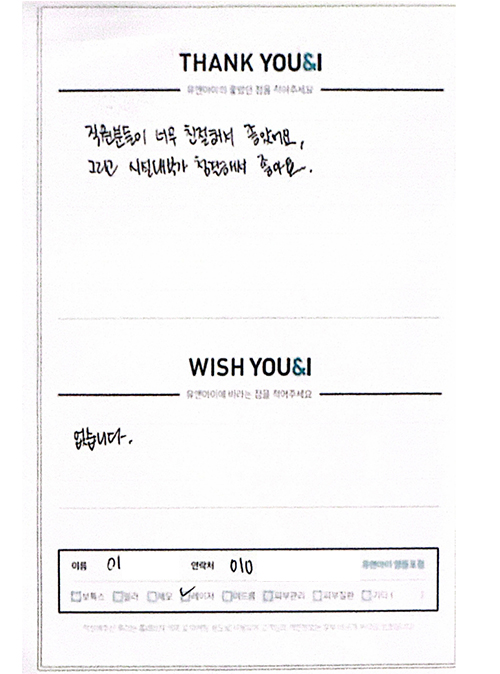 THANK YOU&I
유앤아이의 좋았던 점을 적어주세요
직원분들이 너무 친절해서 좋았어요,
그리고 시설내부가 청결해서 좋아요.
WISH YOU&I
유앤아이에 바라는 점을 적어주세요
없습니다.
이름 이 연락처 010 유앤아이 영등포점
보톡스 필러 제모 레이저 여드름 피부관리 피부질환 기타 ( )